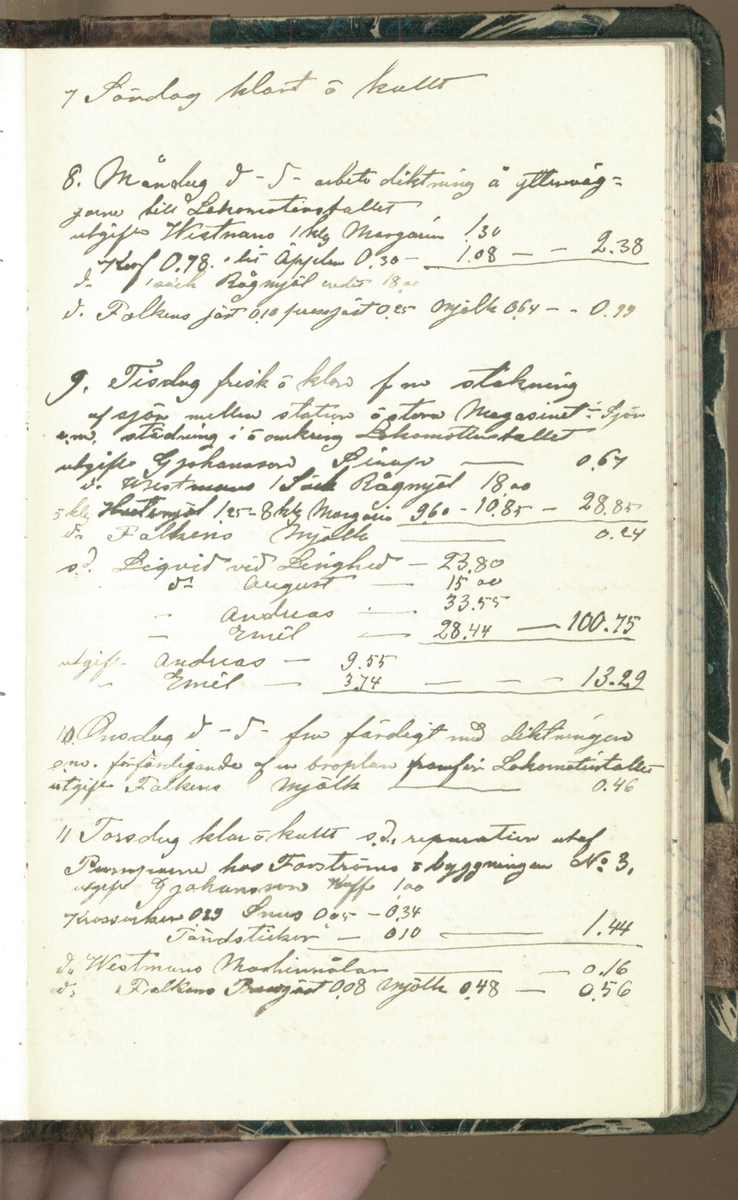 7 Söndag klart ö kallt
8. Måndag d - S - arbete diktning å ytterväg=
garne till Lokomotivstallet
utgift Westmans 1 klg Margarin 1.30
Korf 0.78. 1 lit Äpplen 0.30 - 1.08 - - 2.38
d- 1 säck Rågmjöl 18.00
d. Falkens jäst 0.10 pressjäst 0.25 Mjölk 0.64 - - 0.99
9. Tisdag frisk ö klar f m stakning
af sjön mellan station ö stora Magasinet i Sjön
e.m. städning i ö omkring Lokomotivstallet
utgift G Johansson Sirap — 0.64
d. Westmans 1 Säck Rågmjöl 18.00
5 klg Hvetemjöl 1.25 - 8 klg Margarin 9.60 - 10.85 - 28.85
d- Falkens Mjölk — 0.24
s.d. Liqvid ved Ledighed - 23.80
d- August — 15.00
- Andreas — 33.55
- Emél — 28.44 — 100.75
utgift Andreas — 9.55
- Emél — 3.74 — - - 13.29
10. Onsdag d - S - fm färdigt med diktningen
e.m. förfärdigande af en broplan framför Lokomotivstallet
utgift Falkens Mjölk — 0.46
11 Torsdag klar ö kallt s.d. reparation utaf
Pumparne hos Forströms i byggningen No 3.
utgift G Johansson Kaffe 1.00
0.29 Snus 0.05 - 0.34
Tändstickor — 0.10 — 1.44
d. Westmans Maskinnålar — 0.16
d. Falkens Pressjäst 0.08 Mjölk 0.48 — 0.56